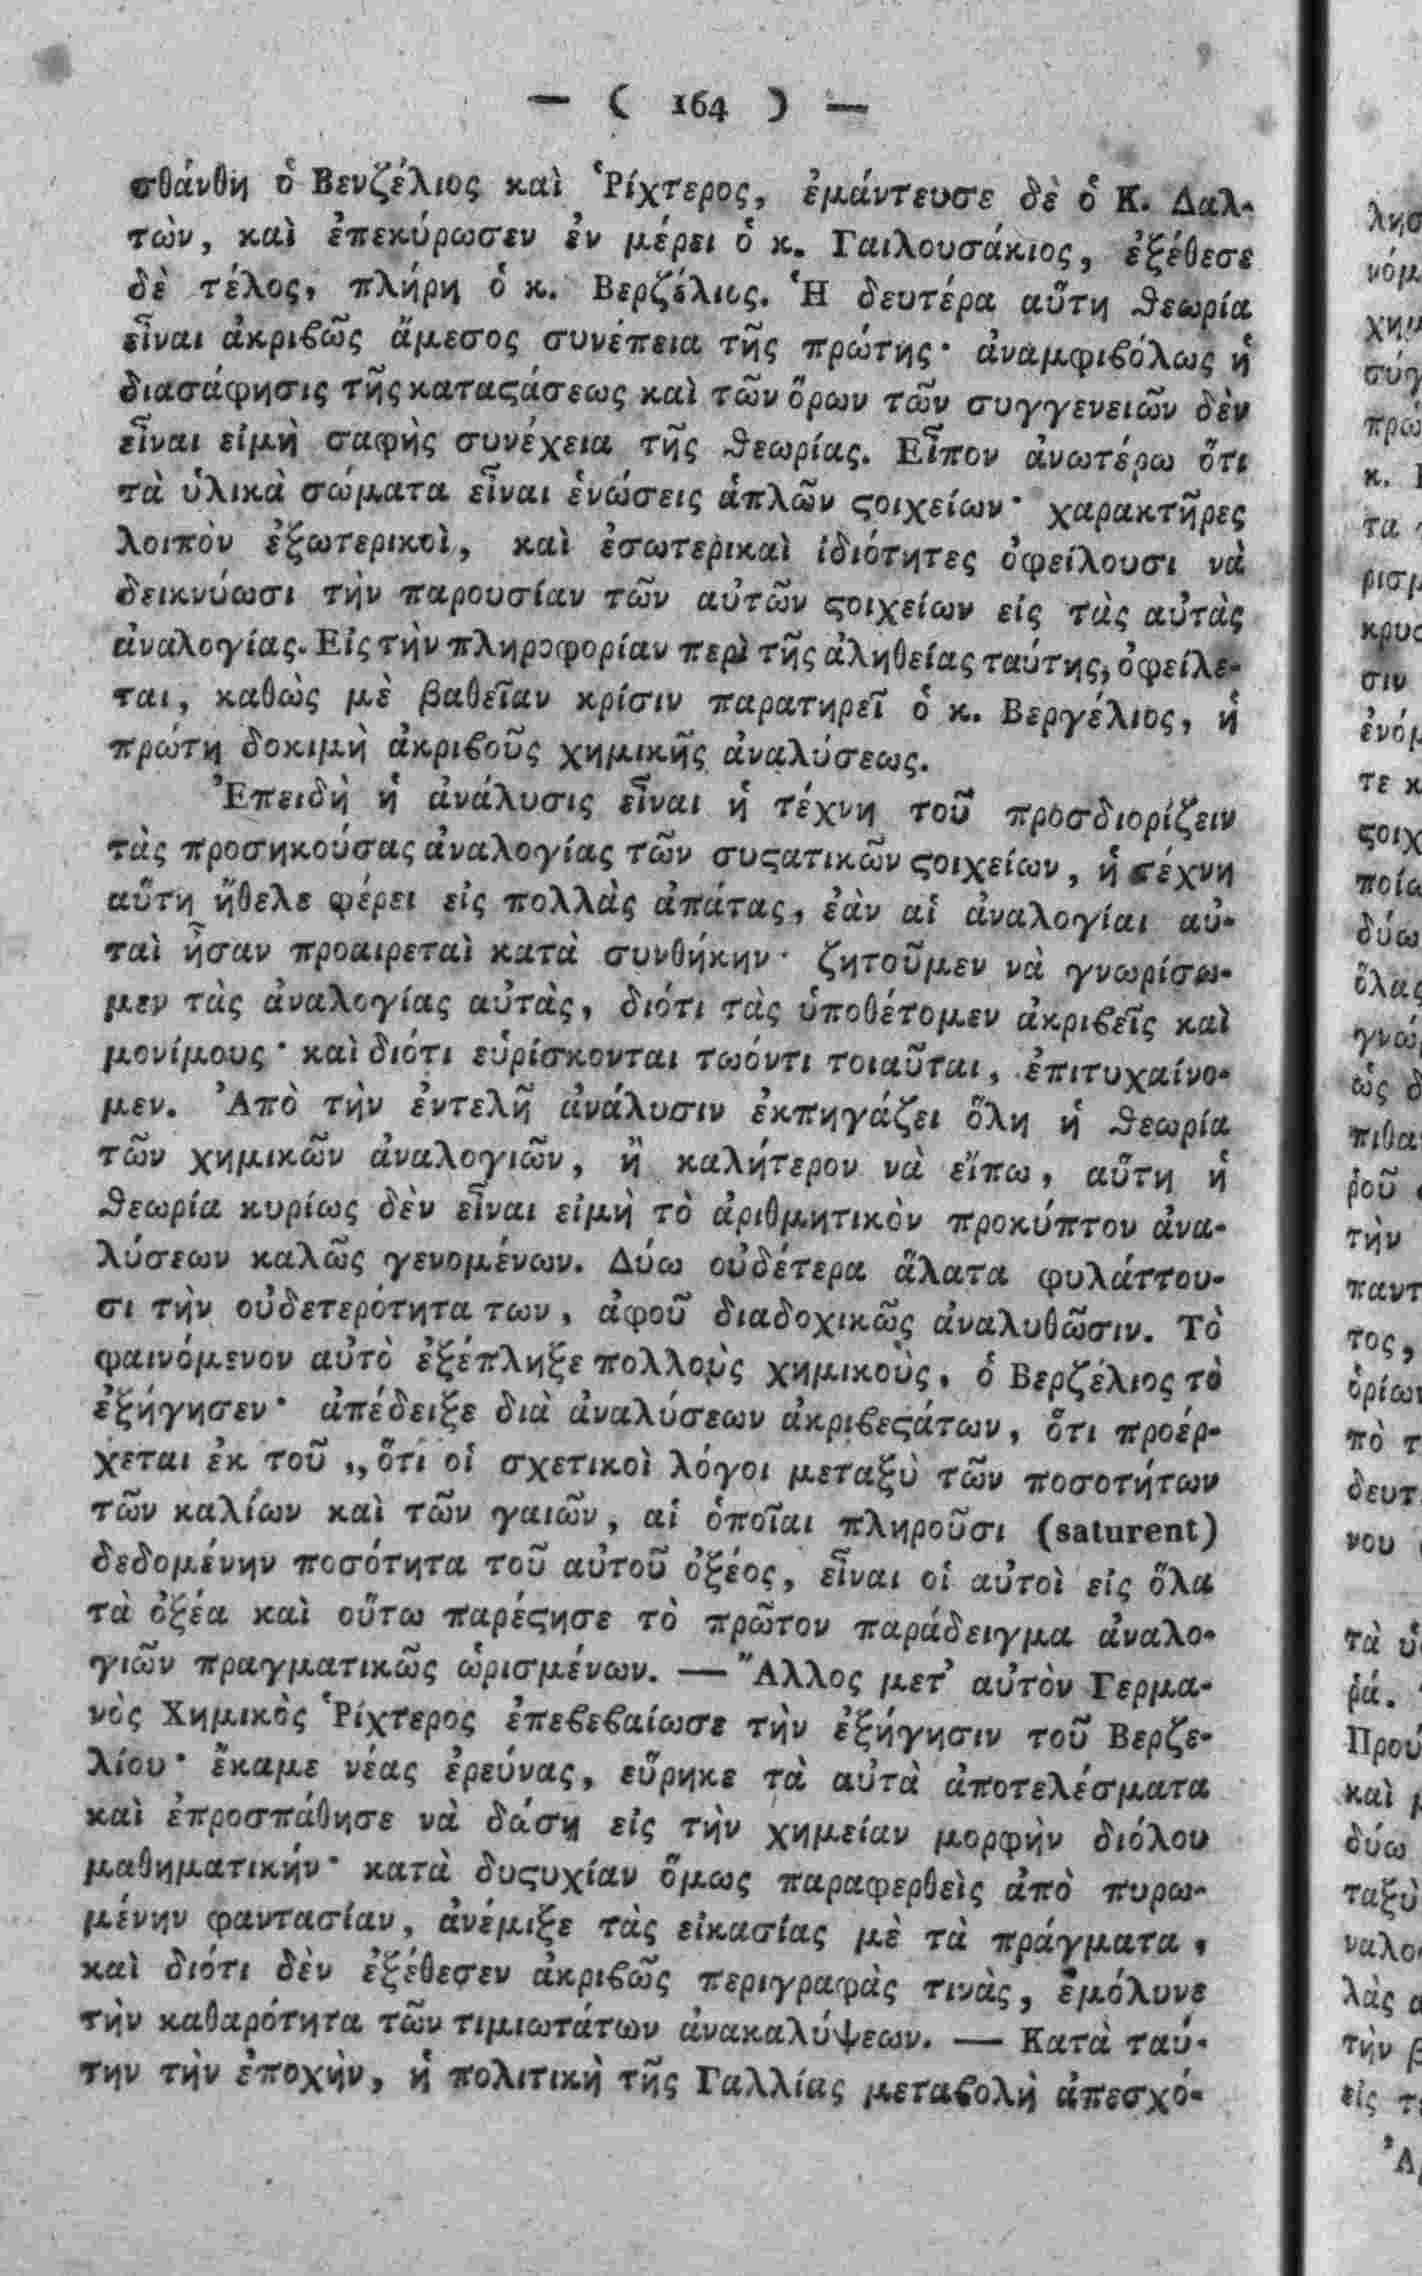 — ( 164 ) —
σθάνθη ὁ Βενζέλιος καὶ Ῥίχτερος, ἐμάντευσε δὲ ὁ Κ. Δαλ-
τὼν, καὶ ἐπεκύρωσεν ἐν μέρει ὁ κ. Γαιλουσάκιος, ἐξέθεσε
δὲ τέλος, πλήρη ὁ κ. Βερζέλιος. Ἡ δευτέρα αὕτη ϑεωρία
εἶναι ἀκριϐῶς ἄμεσος συνέπεια τῆς πρώτης· ἀναμφιϐόλως ἡ
διασάφησις τῆς καταϛάσεως καὶ τῶν ὅρων τῶν συγγενειῶν δὲν
εἶναι εἰμὴ σαφὴς συνέχεια τῆς ϑεωρίας. Εἶπον ἀνωτέρω ὅτι
τὰ ὑλικὰ σώματα εἶναι ἑνώσεις ἁπλῶν ϛοιχείων· χαρακτῆρες
λοιπὸν ἐξωτερικοὶ, καὶ ἐσωτερικαὶ ἰδιότητες ὀφείλουσι νὰ
δεικνύωσι τὴν παρουσίαν τῶν αὐτῶν ϛοιχείων εἰς τὰς αὐτὰς
ἀναλογίας. Εἰς τὴν πληροφορίαν περὶ τῆς ἀληθείας ταύτης, ὀφείλε-
ται, καθὼς μὲ βαθεῖαν κρίσιν παρατηρεῖ ὁ κ. Βεργέλιος, ἡ
πρώτη δοκιμὴ ἀκριϐοῦς χημικῆς ἀναλύσεως.
Ἐπειδὴ ἡ ἀνάλυσις εἶναι ἡ τέχνη τοῦ προσδιορίζειν
τὰς προσηκούσας ἀναλογίας τῶν συϛατικῶν ϛοιχείων, ἡ τέχνη
αὕτη ἤθελε φέρει εἰς πολλὰς ἀπάτας, ἐὰν αἱ ἀναλογίαι αὐ-
ταὶ ἦσαν προαιρεταὶ κατὰ συνθήκην· ζητοῦμεν νὰ γνωρίσω-
μεν τὰς ἀναλογίας αὐτὰς, διότι τὰς ὑποθέτομεν ἀκριϐεῖς καὶ
μονίμους· καὶ διότι εὑρίσκονται τωόντι τοιαῦται, ἐπιτυχαίνο-
μεν. Ἀπὸ τὴν ἐντελῆ ἀνάλυσιν ἐκπηγάζει ὅλη ἡ ϑεωρία
τῶν χημικῶν ἀναλογιῶν, ἢ καλήτερον νὰ εἴπω, αὕτη ἡ
ϑεωρία κυρίως δὲν εἶναι εἰμὴ τὸ ἀριθμητικὸν προκύπτον ἀνα-
λύσεων καλῶς γενομένων. Δύω οὐδέτερα ἅλατα φυλάττου-
σι τὴν οὐδετερότητα των, ἀφοῦ διαδοχικῶς ἀναλυθῶσιν. Τὸ
φαινόμενον αὐτὸ ἐξέπληξε πολλοὺς χημικοὺς, ὁ Βερζέλιος τὸ
ἐξήγησεν· ἀπέδειξε διὰ ἀναλύσεων ἀκριϐεϛάτων, ὅτι προέρ-
χεται ἐκ τοῦ ,,ὅτι οἱ σχετικοὶ λόγοι μεταξὺ τῶν ποσοτήτων
τῶν καλίων καὶ τῶν γαιῶν, αἱ ὁποῖαι πληροῦσι (saturent)
δεδομένην ποσότητα τοῦ αὐτοῦ ὀξέος, εἶναι οἱ αὐτοὶ εἰς ὅλα
τὰ ὀξέα καὶ οὕτω παρέϛησε τὸ πρῶτον παράδειγμα ἀναλο-
γιῶν πραγματικῶς ὡρισμένων. — Ἄλλος μετ' αὐτὸν Γερμα-
νὸς Χημικὸς Ῥίχτερος ἐπεϐεϐαίωσε τὴν ἐξήγησιν τοῦ Βερζε-
λίου· ἔκαμε νέας ἐρεύνας, εὕρηκε τὰ αὐτὰ ἀποτελέσματα
καὶ ἐπροσπάθησε νὰ δάσῃ εἰς τὴν χημείαν μορφὴν διόλου
μαθηματικήν· κατὰ δυϛυχίαν ὅμως παραφερθεὶς ἀπὸ πυρω-
μένην φαντασίαν, ἀνέμιξε τὰς εἰκασίας μὲ τὰ πράγματα,
καὶ διότι δὲν ἐξέθεσεν ἀκριϐῶς περιγραφὰς τινὰς, ἐμόλυνε
τὴν καθαρότητα τῶν τιμιωτάτων ἀνακαλύψεων. — Κατὰ ταύ-
την τὴν ἐποχὴν, ἡ πολιτικὴ τῆς Γαλλίας μεταϐολὴ ἀπεσχό-